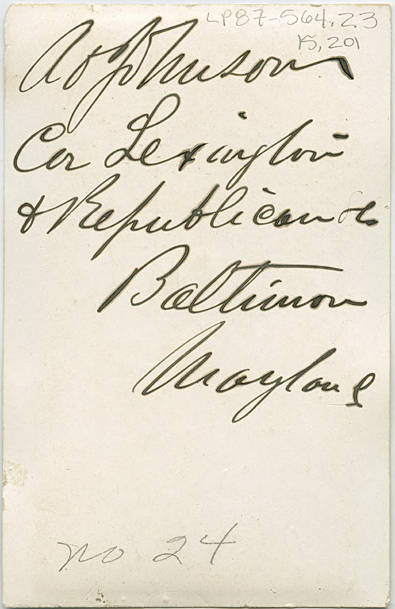 LP87-564.23
15,201
Ao Johnson
Cor Lexington
& Republican Sts
Baltimore
Maryland
no 24